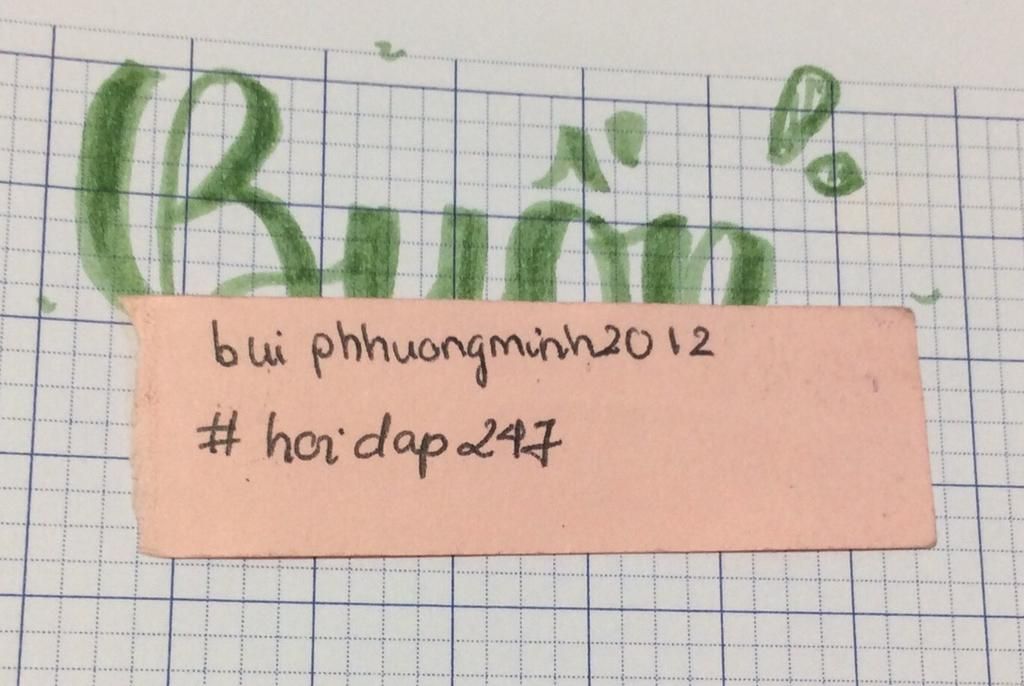 Buồn!
bui phhuongminh2012
# hoidap247